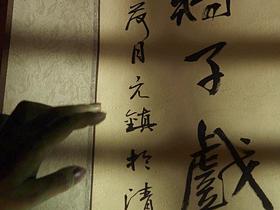 子戲
荷月元鎮於清